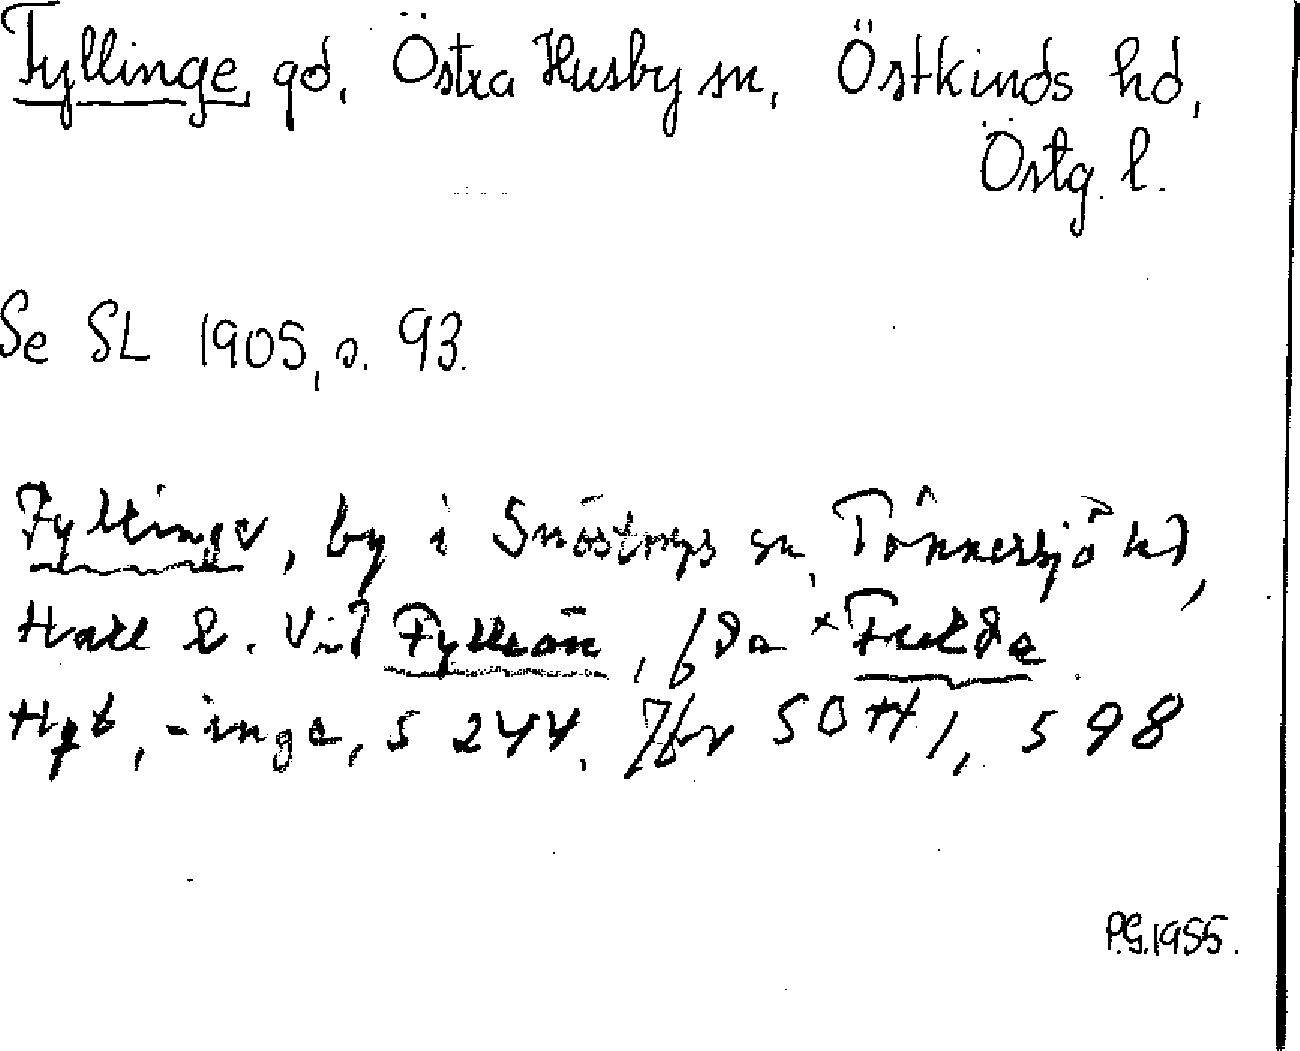 Fyllinge, gd. Östra Husby sn, Östkinds hd,
Östg. l.
Se SL 1905, s. 93.
Fyllinge, by i Snöstorps sn, Tönnersjö hd,
Hall l. Vid Fylleån, fda *Fulda
Hqt, -inge, s 244. Jfr SOH 1, s 98
P.G. 1955.